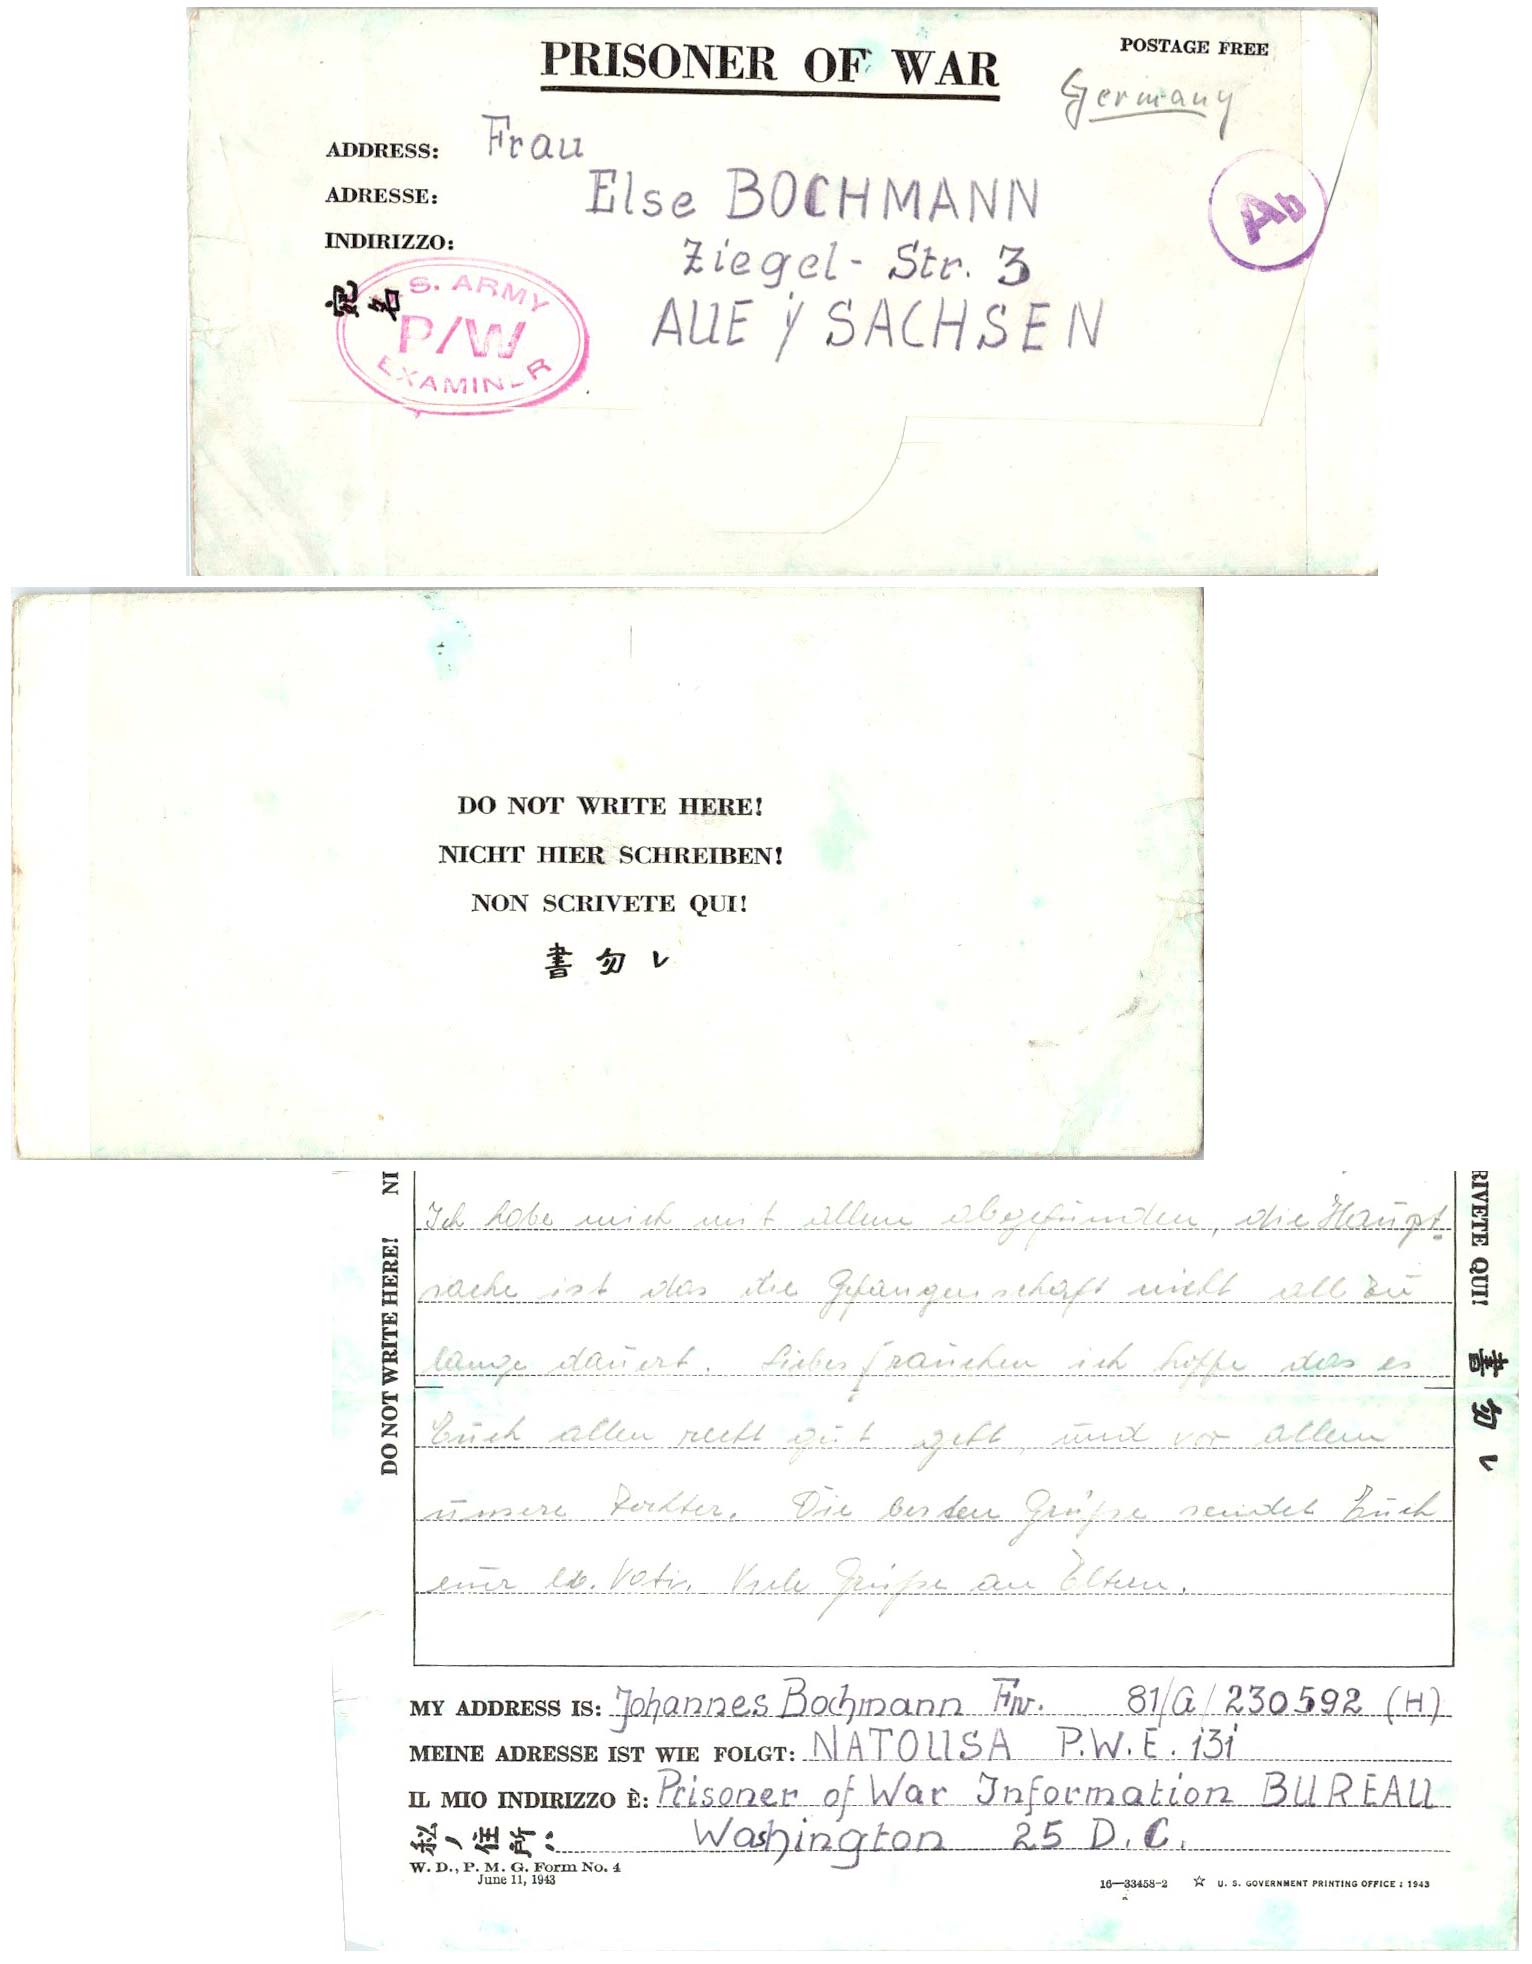 PRISONER OF WAR
POSTAGE FREE
Germany
ADDRESS: Frau
ADRESSE: Else BOCHMANN
INDIRIZZO: Ziegel-Str. 3
宛名
AUE i/ SACHSEN
U. S. ARMY
P/W
EXAMINER
Ab
DO NOT WRITE HERE!
NICHT HIER SCHREIBEN!
NON SCRIVETE QUI!
書勿レ
NI
DO NOT WRITE HERE!
RIVETE QUI! 書勿レ
Ich habe mich mit allem abgefunden, die Haupt-
sache ist das die Gefangenschaft nicht all zu
lange dauert. Liebes Frauchen ich hoffe das es
Euch allen recht gut geht, und vor allem
unsere Tochter. Die besten Grüße sendet Euch
eur lb. Vati. Viele Grüße an Eltern.
MY ADDRESS IS: Johannes Bochmann 81/G/230592 (H)
MEINE ADRESSE IST WIE FOLGT: NATOUSA P.W.E. 131
IL MIO INDIRIZZO È: Prisoner of War Information BUREAU
私ノ住所: Washington 25 D.C.
W. D., P. M. G. Form No. 4
June 11, 1943
16—33458-2 ☆ U. S. GOVERNMENT PRINTING OFFICE : 1943